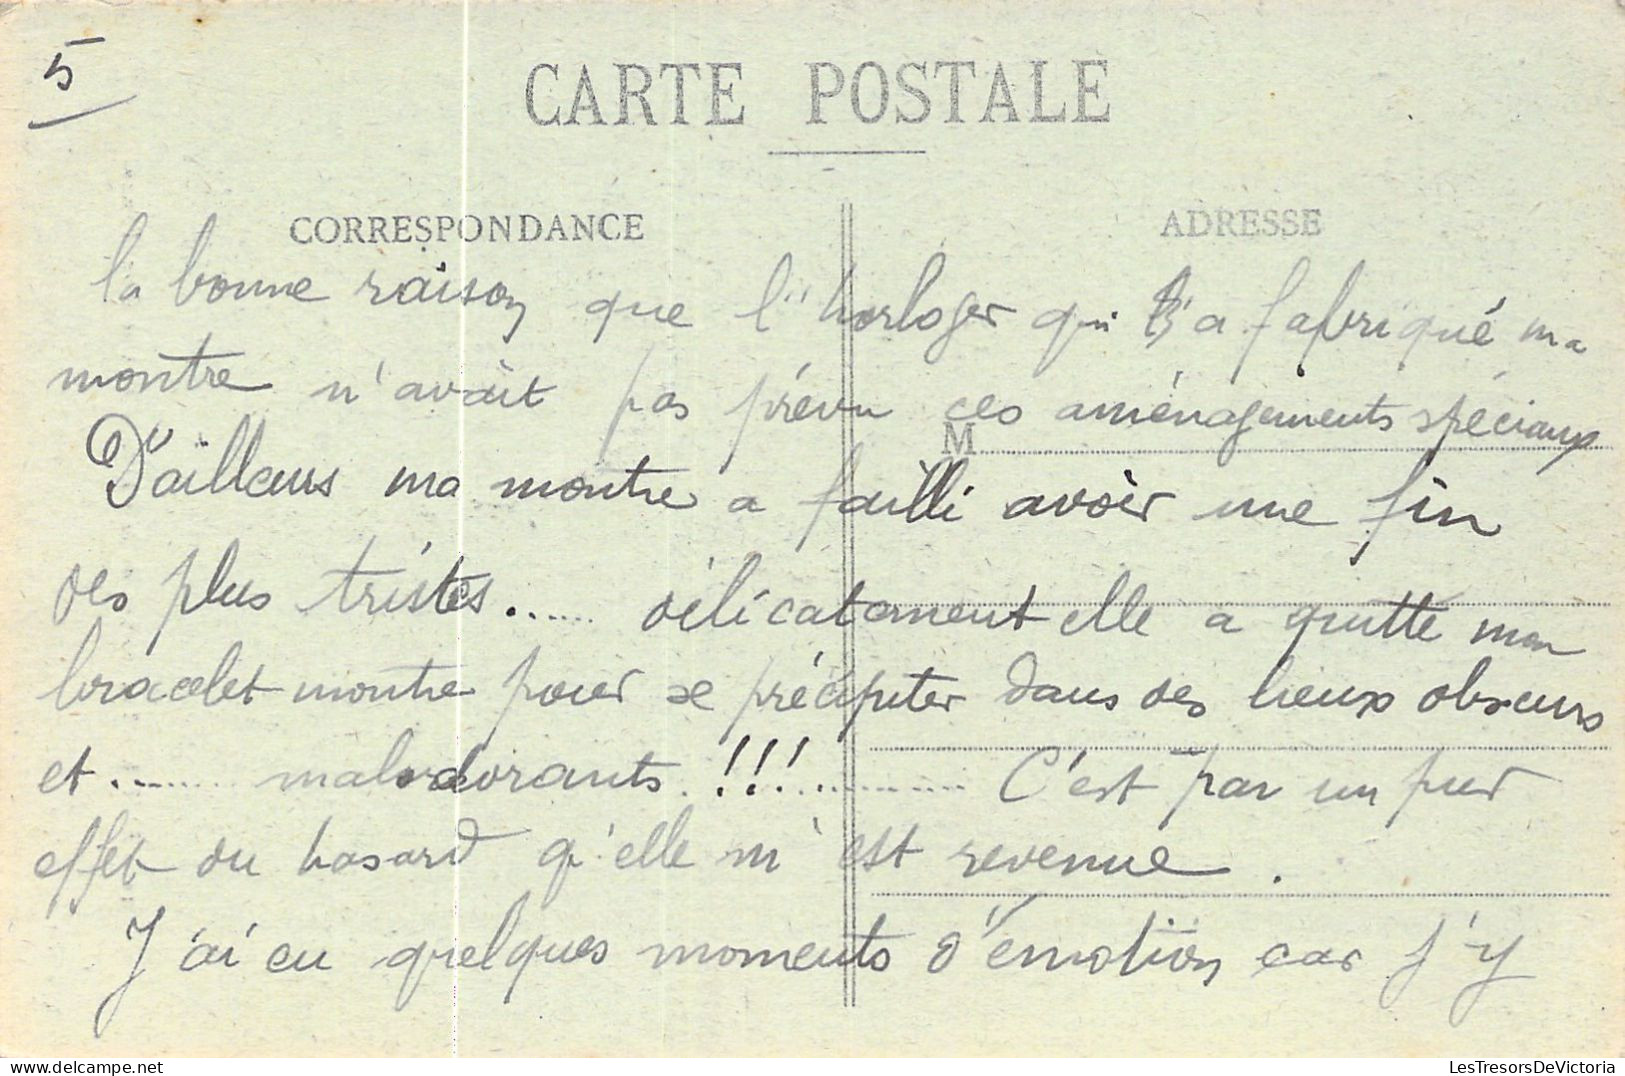 5
CARTE POSTALE
CORRESPONDANCE
ADRESSE
la bonne raison que l'horloger qui a fabriqué ma
montre n'avait pas prévu ces aménagements spéciaux
M
D'ailleurs ma montre a failli avoir une fin
des plus tristes...... délicatement elle a quitté mon
bracelet montre pour se précipiter dans des lieux obscurs
et ........ malodorants.!!!............ C'est par un pur
effet du hasard qu'elle m'est revenue.
J'ai eu quelques moments d'émotion car j'y
LesTresorsDeVictoria